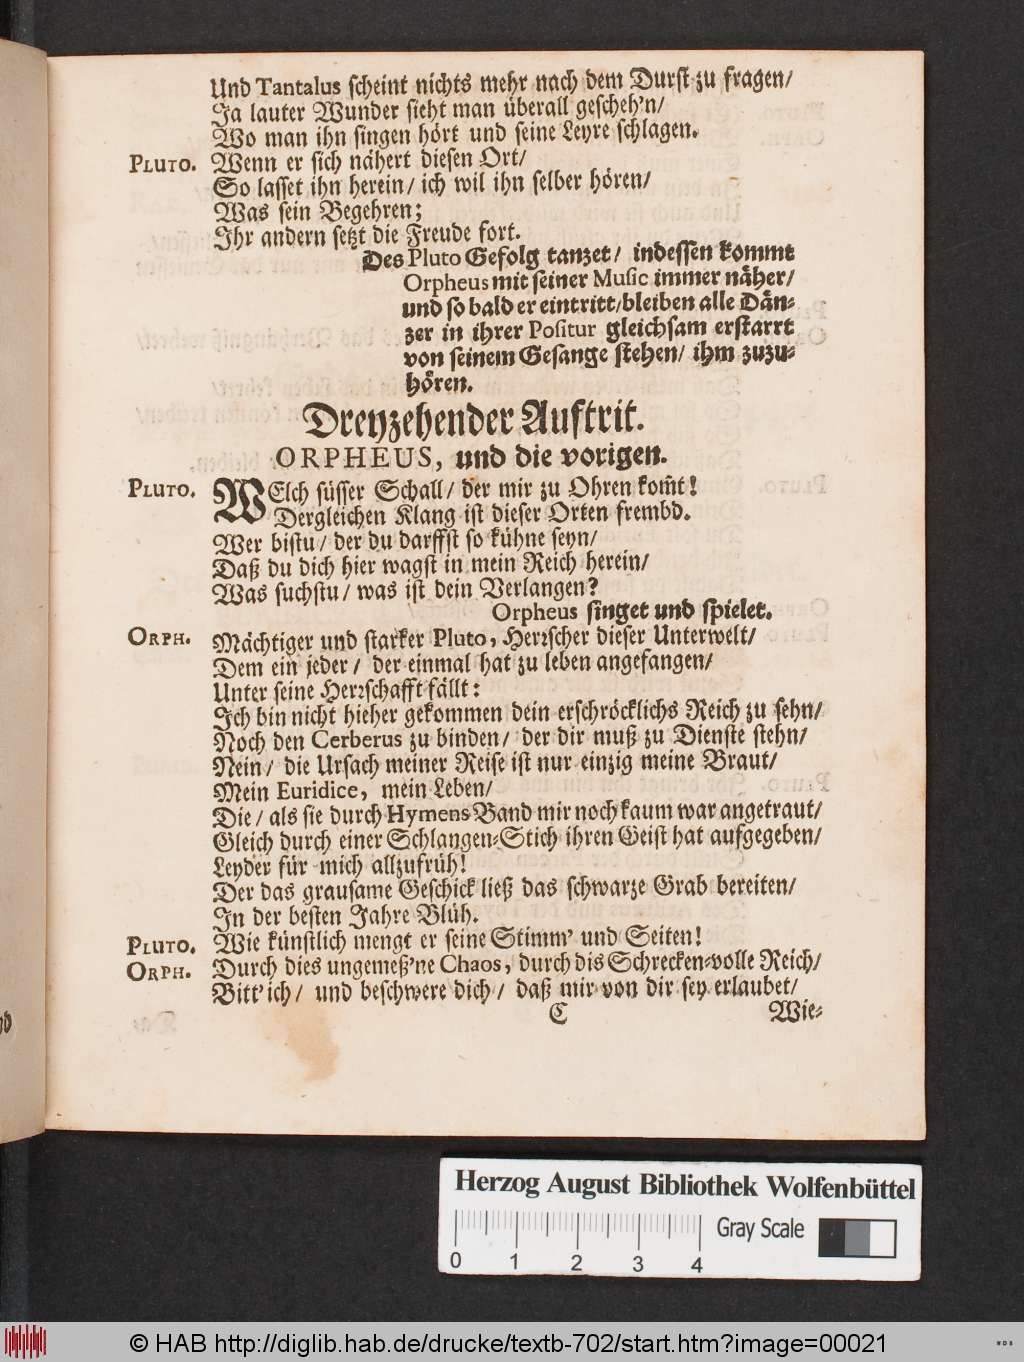 Und Tantalus scheint nichts mehr nach dem Durst zu fragen/
Ja lauter Wunder sieht man überall gescheh'n/
Wo man ihn singen hört und seine Leyre schlagen.
PLUTO. Wenn er sich nähert diesen Ort/
So lasset ihn herein/ ich wil ihn selber hören/
Was sein Begehren;
Ihr andern setzt die Freude fort.
Des Pluto Gefolg tanzet/ indessen kommt
Orpheus mit seiner Music immer näher/
und so bald er eintritt/bleiben alle Dän-
zer in ihrer Positur gleichsam erstarrt
von seinem Gesange stehen/ ihm zuzu-
hören.
Dreyzehender Auftrit.
ORPHEUS, und die vorigen.
PLUTO. WElch süsser Schall/ der mir zu Ohren kom̃t!
Dergleichen Klang ist dieser Orten frembd.
Wer bistu/ der du darffst so kühne seyn/
Daß du dich hier wagst in mein Reich herein/
Was suchstu/ was ist dein Verlangen?
Orpheus singet und spielet.
ORPH. Mächtiger und starker Pluto, Herrscher dieser Unterwelt/
Dem ein jeder/ der einmal hat zu leben angefangen/
Unter seine Herrschafft fällt:
Ich bin nicht hieher gekommen dein erschröcklichs Reich zu sehn/
Noch den Cerberus zu binden/ der dir muß zu Dienste stehn/
Nein/ die Ursach meiner Reise ist nur einzig meine Braut/
Mein Euridice, mein Leben/
Die/ als sie durch Hymens Band mir noch kaum war angetraut/
Gleich durch einer Schlangen-Stich ihren Geist hat aufgegeben/
Leyder für mich allzufrüh!
Der das grausame Geschick ließ das schwarze Grab bereiten/
In der besten Jahre Blüh.
PLUTO. Wie künstlich mengt er seine Stimm' und Seiten!
ORPH. Durch dies ungemeß'ne Chaos, durch dis Schrecken-volle Reich/
Bitt' ich/ und beschwere dich/ daß mir von dir sey erlaubet/
C Wie-
Herzog August Bibliothek Wolfenbüttel
Gray Scale
0 1 2 3 4
© HAB http://diglib.hab.de/drucke/textb-702/start.htm?image=00021